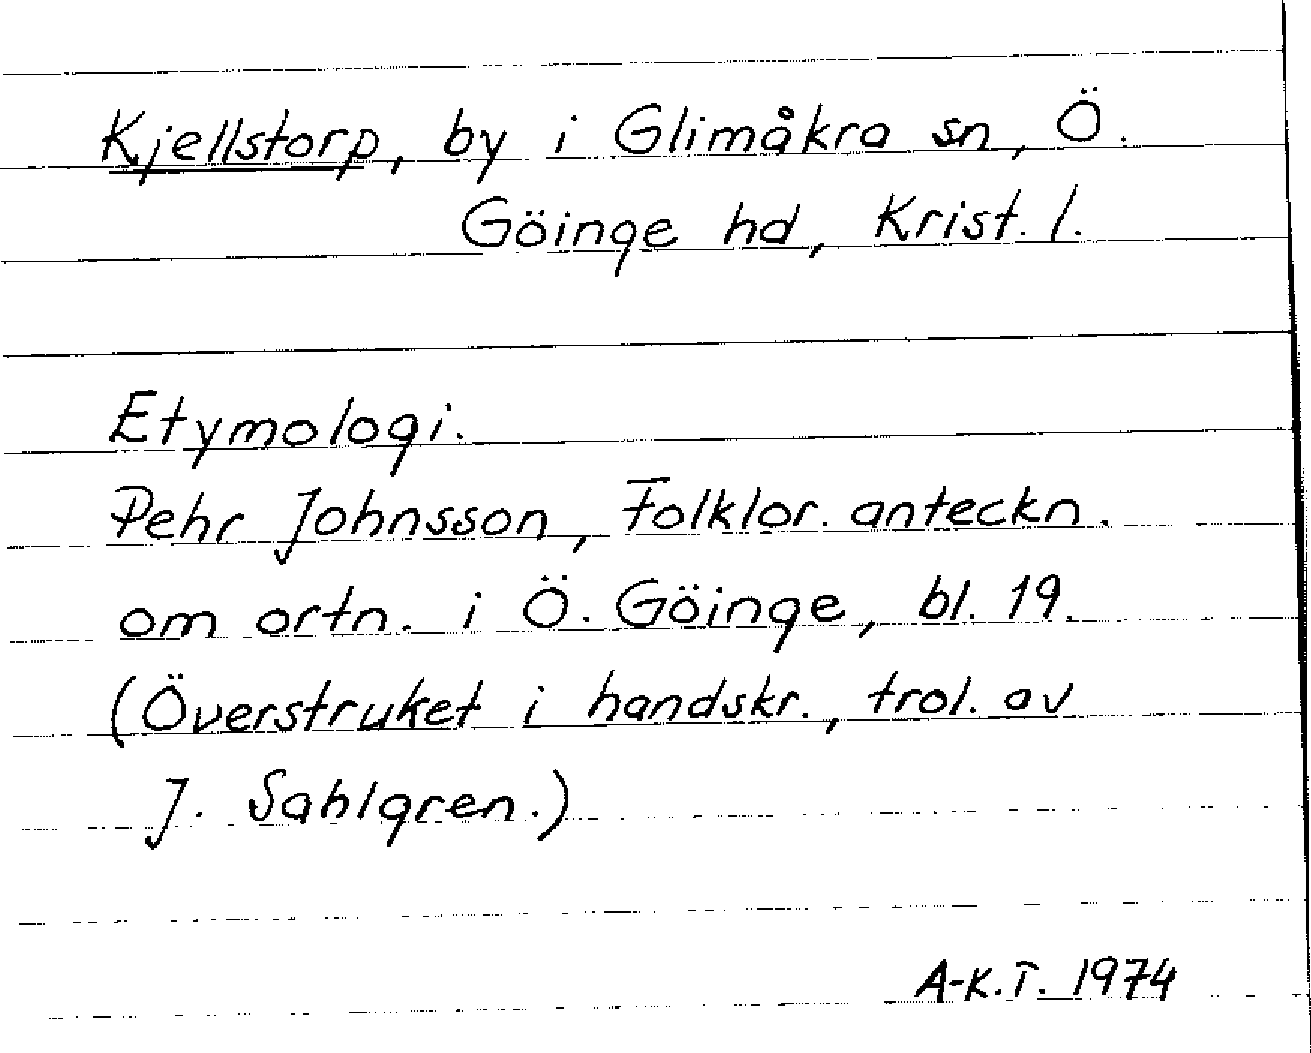 Kjellstorp, by i Glimåkra sn, Ö.
Göinge hd, Krist. l.
Etymologi.
Pehr Johnsson, Folklor. anteckn.
om ortn. i Ö. Göinge, bl. 19.
(Överstruket i handskr., trol. av
J. Sahlgren.)
A-K.T. 1974